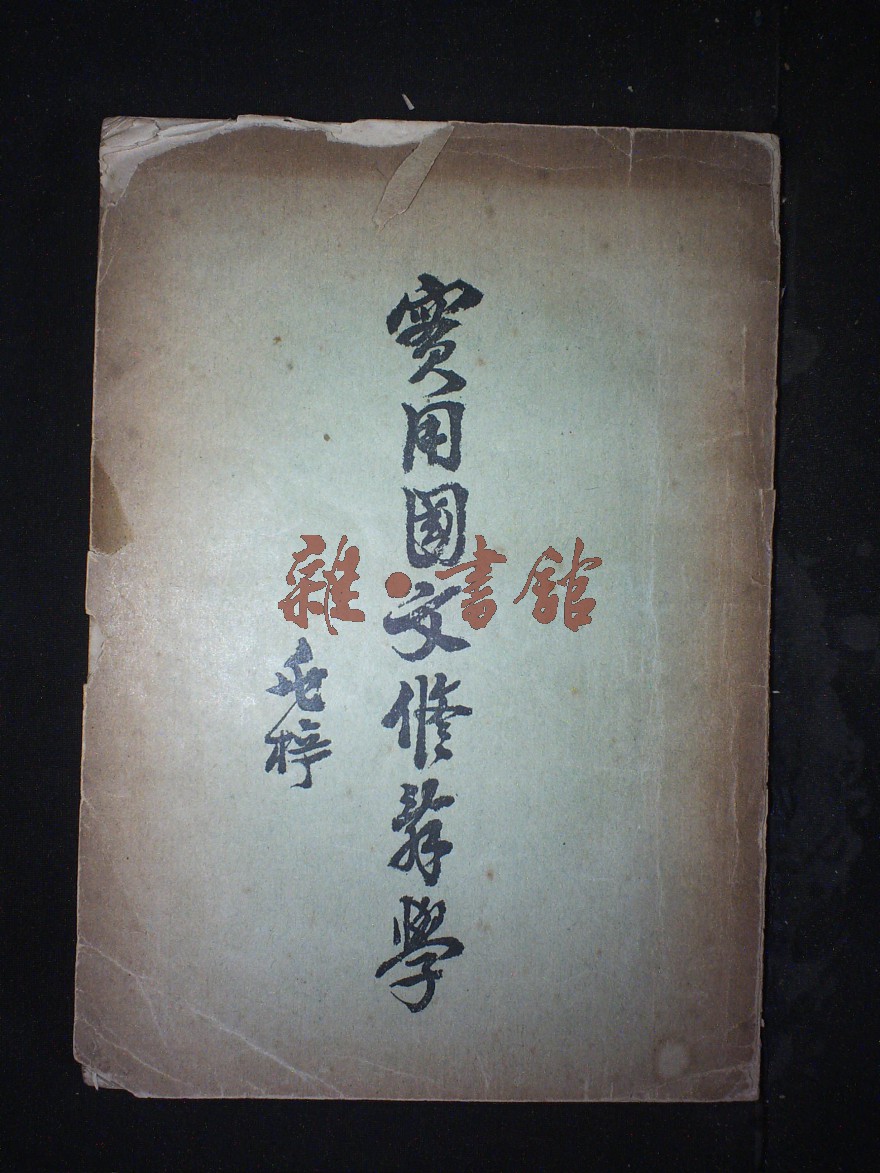 實用國文修辭學
雜·書館